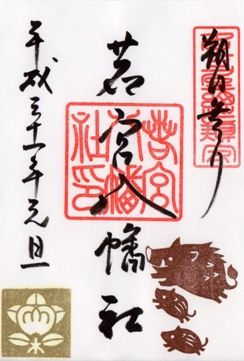 朔日参り
若宮八幡社
若宮八幡社印
平成三十一年元旦